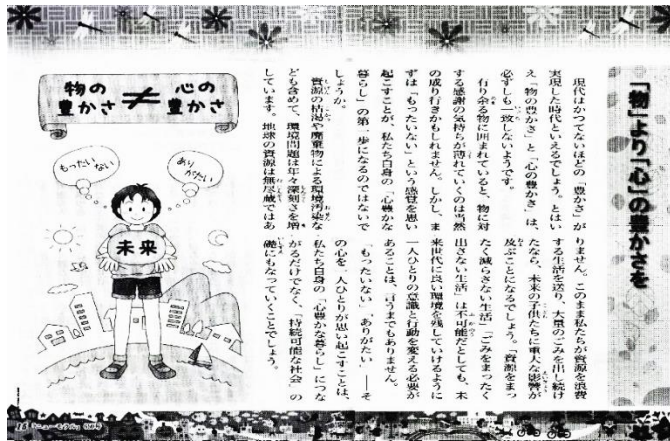 「物」より「心」の豊かさを
現代はかつてないほどの「豊かさ」が
実現した時代といえるでしょう。とはい
え「物の豊かさ」と「心の豊かさ」は、
必ずしも一致しないようです。
有り余る物に囲まれていると、物に対
する感謝の気持ちが薄れていくのは当然
の成り行きかもしれません。しかし、ま
ずは「もったいない」という感覚を思い
起こすことが、私たち自身の「心豊かな
暮らし」の第一歩になるのではないで
しょうか。
資源の枯渇や廃棄物による環境汚染な
ども含めて、環境問題は年々深刻さを増
しています。地球の資源は無尽蔵ではあ
りません。このまま私たちが資源を浪費
する生活を送り、大量のごみを出し続け
たなら、未来の子供たちに重大な影響が
及ぶことになるでしょう。「資源をまっ
たく減らさない生活」「ごみをまったく
出さない生活」は不可能だとしても、未
来世代に良い環境を残していけるように
一人ひとりの意識と行動を変える必要が
あることは、言うまでもありません。
「もったいない」「ありがたい」――そ
の心を一人ひとりが思い起こすことは、
私たち自身の「心豊かな暮らし」につな
がるだけでなく、「持続可能な社会」の
礎にもなっていくことでしょう。
物の豊かさ≠心の豊かさ
もったいない
ありがたい
未来
16 『ニューモラル』